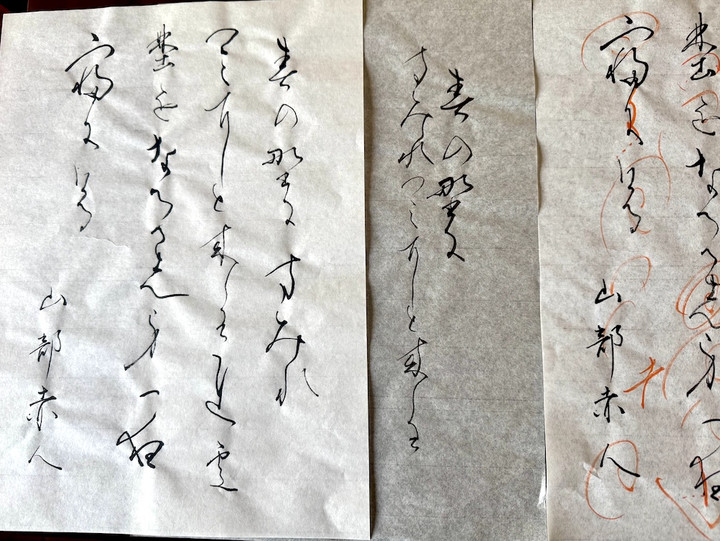 埜をなつかしみ一夜
寝にける
山部赤人
春の野に
すみれつみにと来しわ
春の野にすみれ
つみにと来しわれ
埜をなつかしみ一夜
寝にける
山部赤人